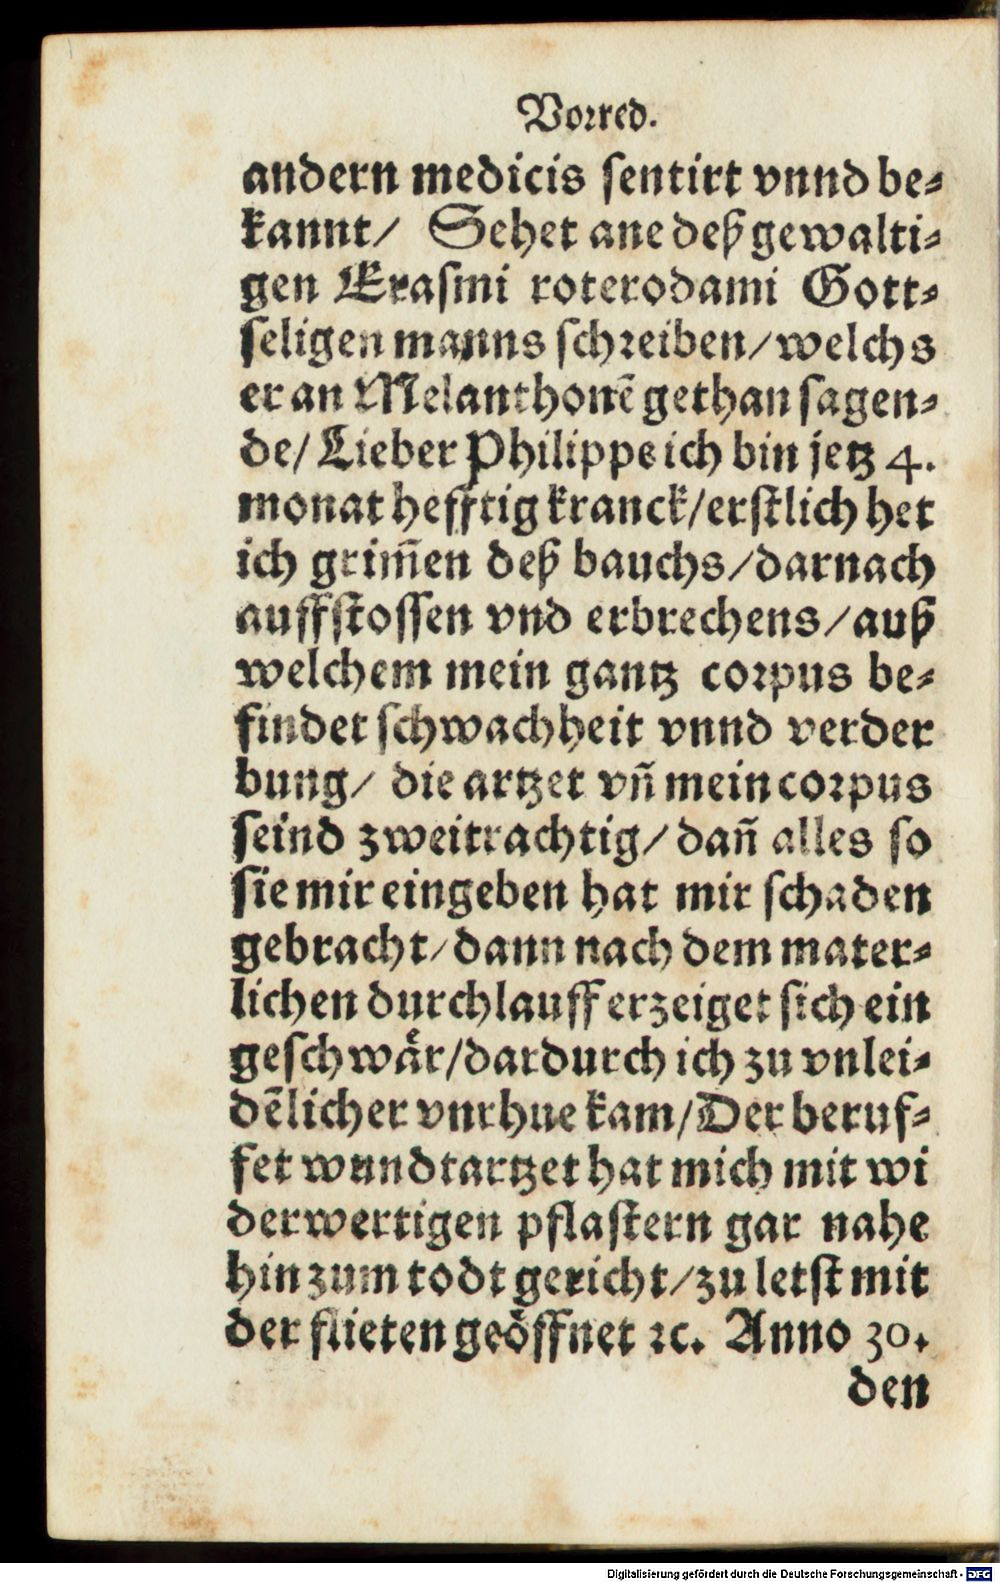 Vorred.
andern medicis ſentirt vnnd be⸗
kannt/ Sehet ane deß gewalti⸗
gen Eraſmi roterodami Gott⸗
ſeligen manns ſchreiben/welchs
er an Melanthonẽ gethan ſagen⸗
de/ Lieber Philippe ich bin jetz 4.
monat hefftig kranck/erſtlich het
ich grim̃en deß bauchs/darnach
auffſtoſſen vnd erbrechens/auß
welchem mein gantz corpus be⸗
findet ſchwachheit vnnd verder
bung/ die artzet vñ mein corpus
ſeind zweitrachtig/dañ alles ſo
ſie mir eingeben hat mir ſchaden
gebracht/dann nach dem mater⸗
lichen durchlauff erzeiget ſich ein
geſchwaͤr/dardurch ich zu vnlei⸗
dẽlicher vnrhue kam/Der beruf⸗
fet wundtartzet hat mich mit wi
derwertigen pflaſtern gar nahe
hin zum todt gericht/zu letſt mit
der flieten geoͤffnet ꝛc. Anno 30.
den
Digitalisierung gefördert durch die Deutsche Forschungsgemeinschaft - DFG